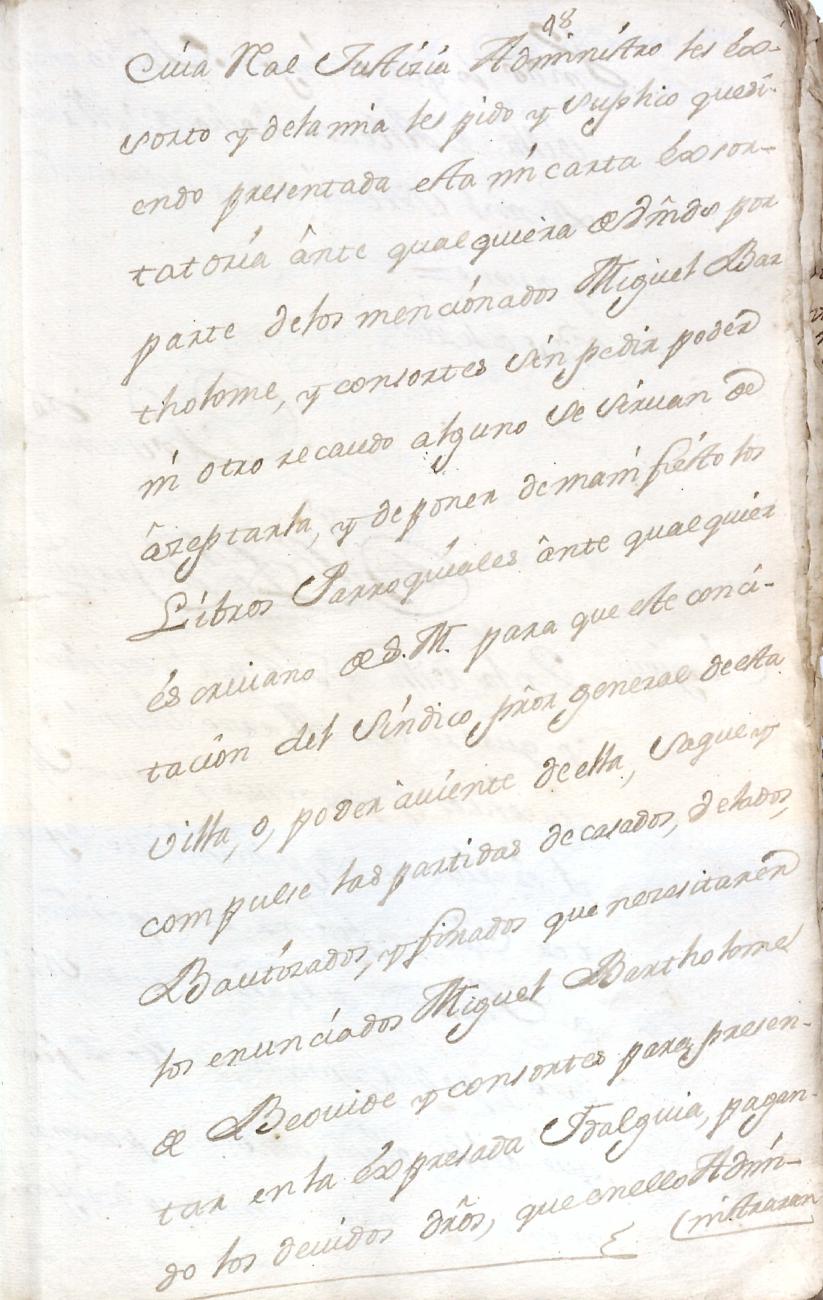 98
Cuia Real Justizia Administro les éx-
sorto y de la mia les pido y suplico que si-
endo presentada esta mi carta éxsor-
tatoria ânte qualquiera de Vmds por
parte de los mencionados Miguel Bar
tholome, y consortes sin pedir poder
ni otro recaudo alguno se siruan de
âzeptarla, y de poner de manifiesto los
Libros Parroquiales ânte qualquier
éscriuano de S. M. para que este con ci-
tación del Síndico prõr general de esta
villa, o, poder auiente de ella, saque y
compulse las partidas de casados, velados,
Bautizados, y finados que nezesitaren
los enunciados Miguel Bartholome
de Beovide y consortes para presen-
tar en la éxpresada Idalguia, pagan-
do los deuidos drõs, que en ello Admi-
nistraran